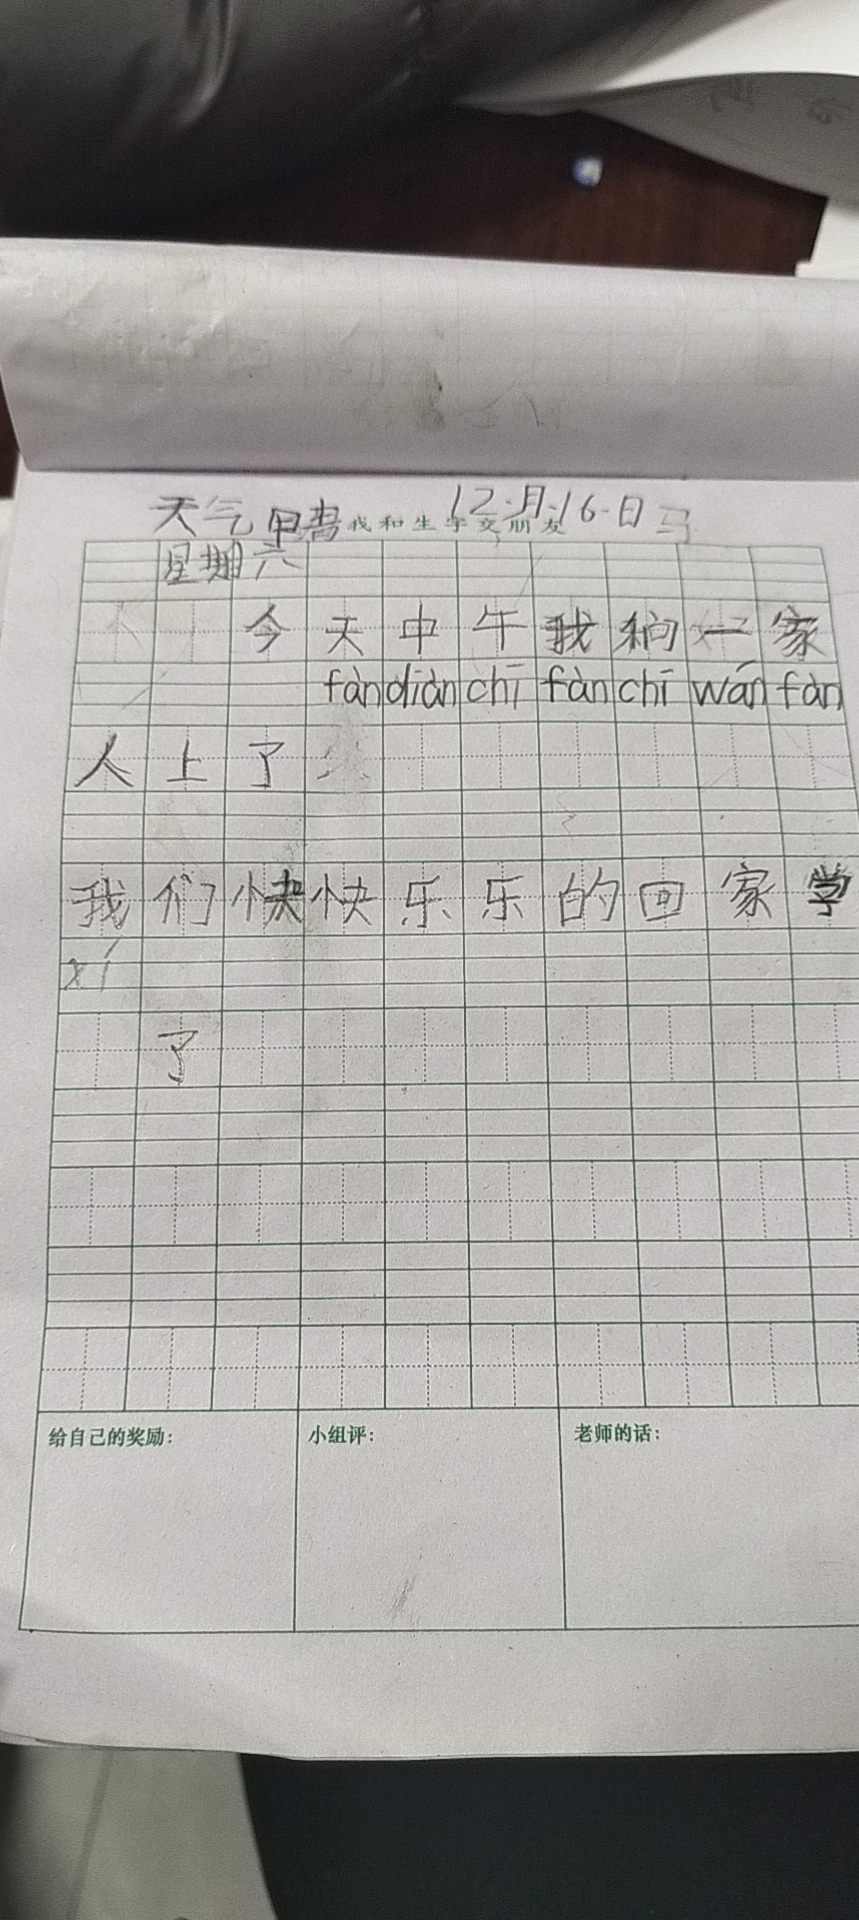 天气 12.月.16.日
我和生字交朋友
星期六
今天中午我们一家
fàn diàn chī fàn chī wán fàn
人上了
我们快快乐乐的回家学
xí
了
给自己的奖励： 小组评： 老师的话：